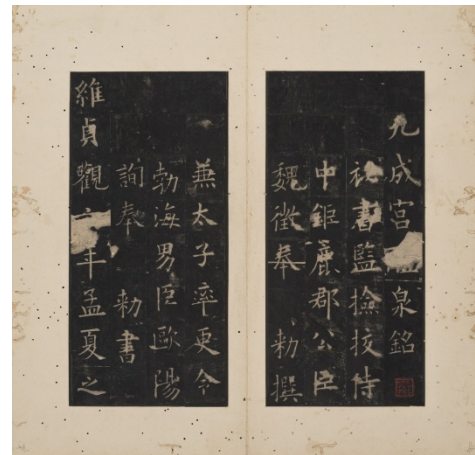 九成宮泉銘
祕書監撿挍侍
中鉅鹿郡公臣
魏徵奉 勅撰
兼太子率更令
勃海男臣歐陽
詢奉 勅書
維貞觀六年孟夏之